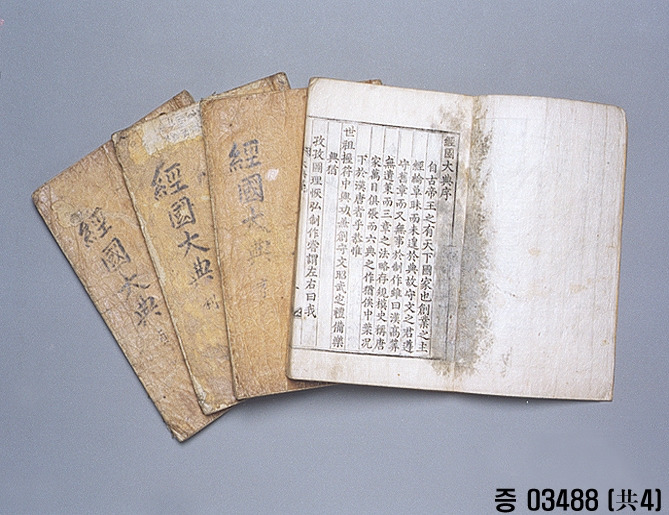 經國大典
經國大典 刑
經國大典
經國大典序
自古帝王之有天下國家也創業之主
經綸草昧而未遑於典故守文之君遵
守舊章而又無事於制作雖曰漢高筭
無遺策而三章之法略存規模史稱唐
家萬目俱張而六典之作猶俟中葉况
下於漢唐者乎恭惟
世祖握符中興功兼創守文昭武定禮備樂
興猶
孜孜圖理恢弘制作嘗謂左右曰我
증 03488 (共4)